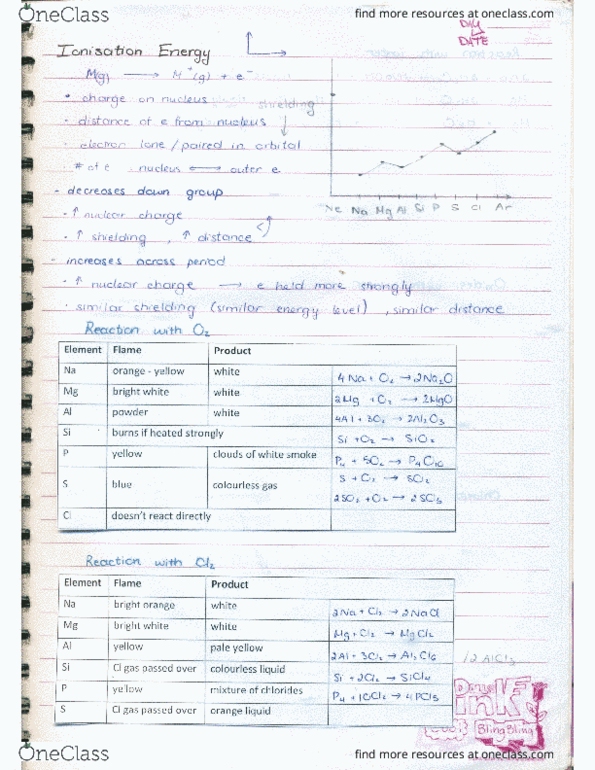 OneClass
find more resources at oneclass.com
DAY
DATE
Ionisation Energy
M(g) → M⁺(g) + e⁻
• charge on nucleus
shielding
• distance of e from nucleus
• electron lone / paired in orbital
• # of e nucleus ⟷ outer e
- decreases down group
• ↑ nuclear charge
• ↑ shielding , ↑ distance
- increases across period
• ↑ nuclear charge → e held more strongly
• similar shielding (similar energy level) , similar distance
Ne Na Mg Al Si P S Cl Ar
Reaction with O₂
Element Flame Product
Na orange - yellow white 4Na + O₂ → 2Na₂O
Mg bright white white 2Mg + O₂ → 2MgO
Al powder white 4Al + 3O₂ → 2Al₂O₃
Si burns if heated strongly Si + O₂ → SiO₂
P yellow clouds of white smoke P₄ + 5O₂ → P₄O₁₀
S blue colourless gas S + O₂ → SO₂
2SO₂ + O₂ → 2SO₃
Cl doesn't react directly
Reaction with Cl₂
Element Flame Product
Na bright orange white 2Na + Cl₂ → 2NaCl
Mg bright white white Mg + Cl₂ → MgCl₂
Al yellow pale yellow 2Al + 3Cl₂ → Al₂Cl₆ / 2AlCl₃
Si Cl gas passed over colourless liquid Si + 2Cl₂ → SiCl₄
P yellow mixture of chlorides P₄ + 10Cl₂ → 4PCl₅
S Cl gas passed over orange liquid
Bling Bling
OneClass
find more resources at oneclass.com